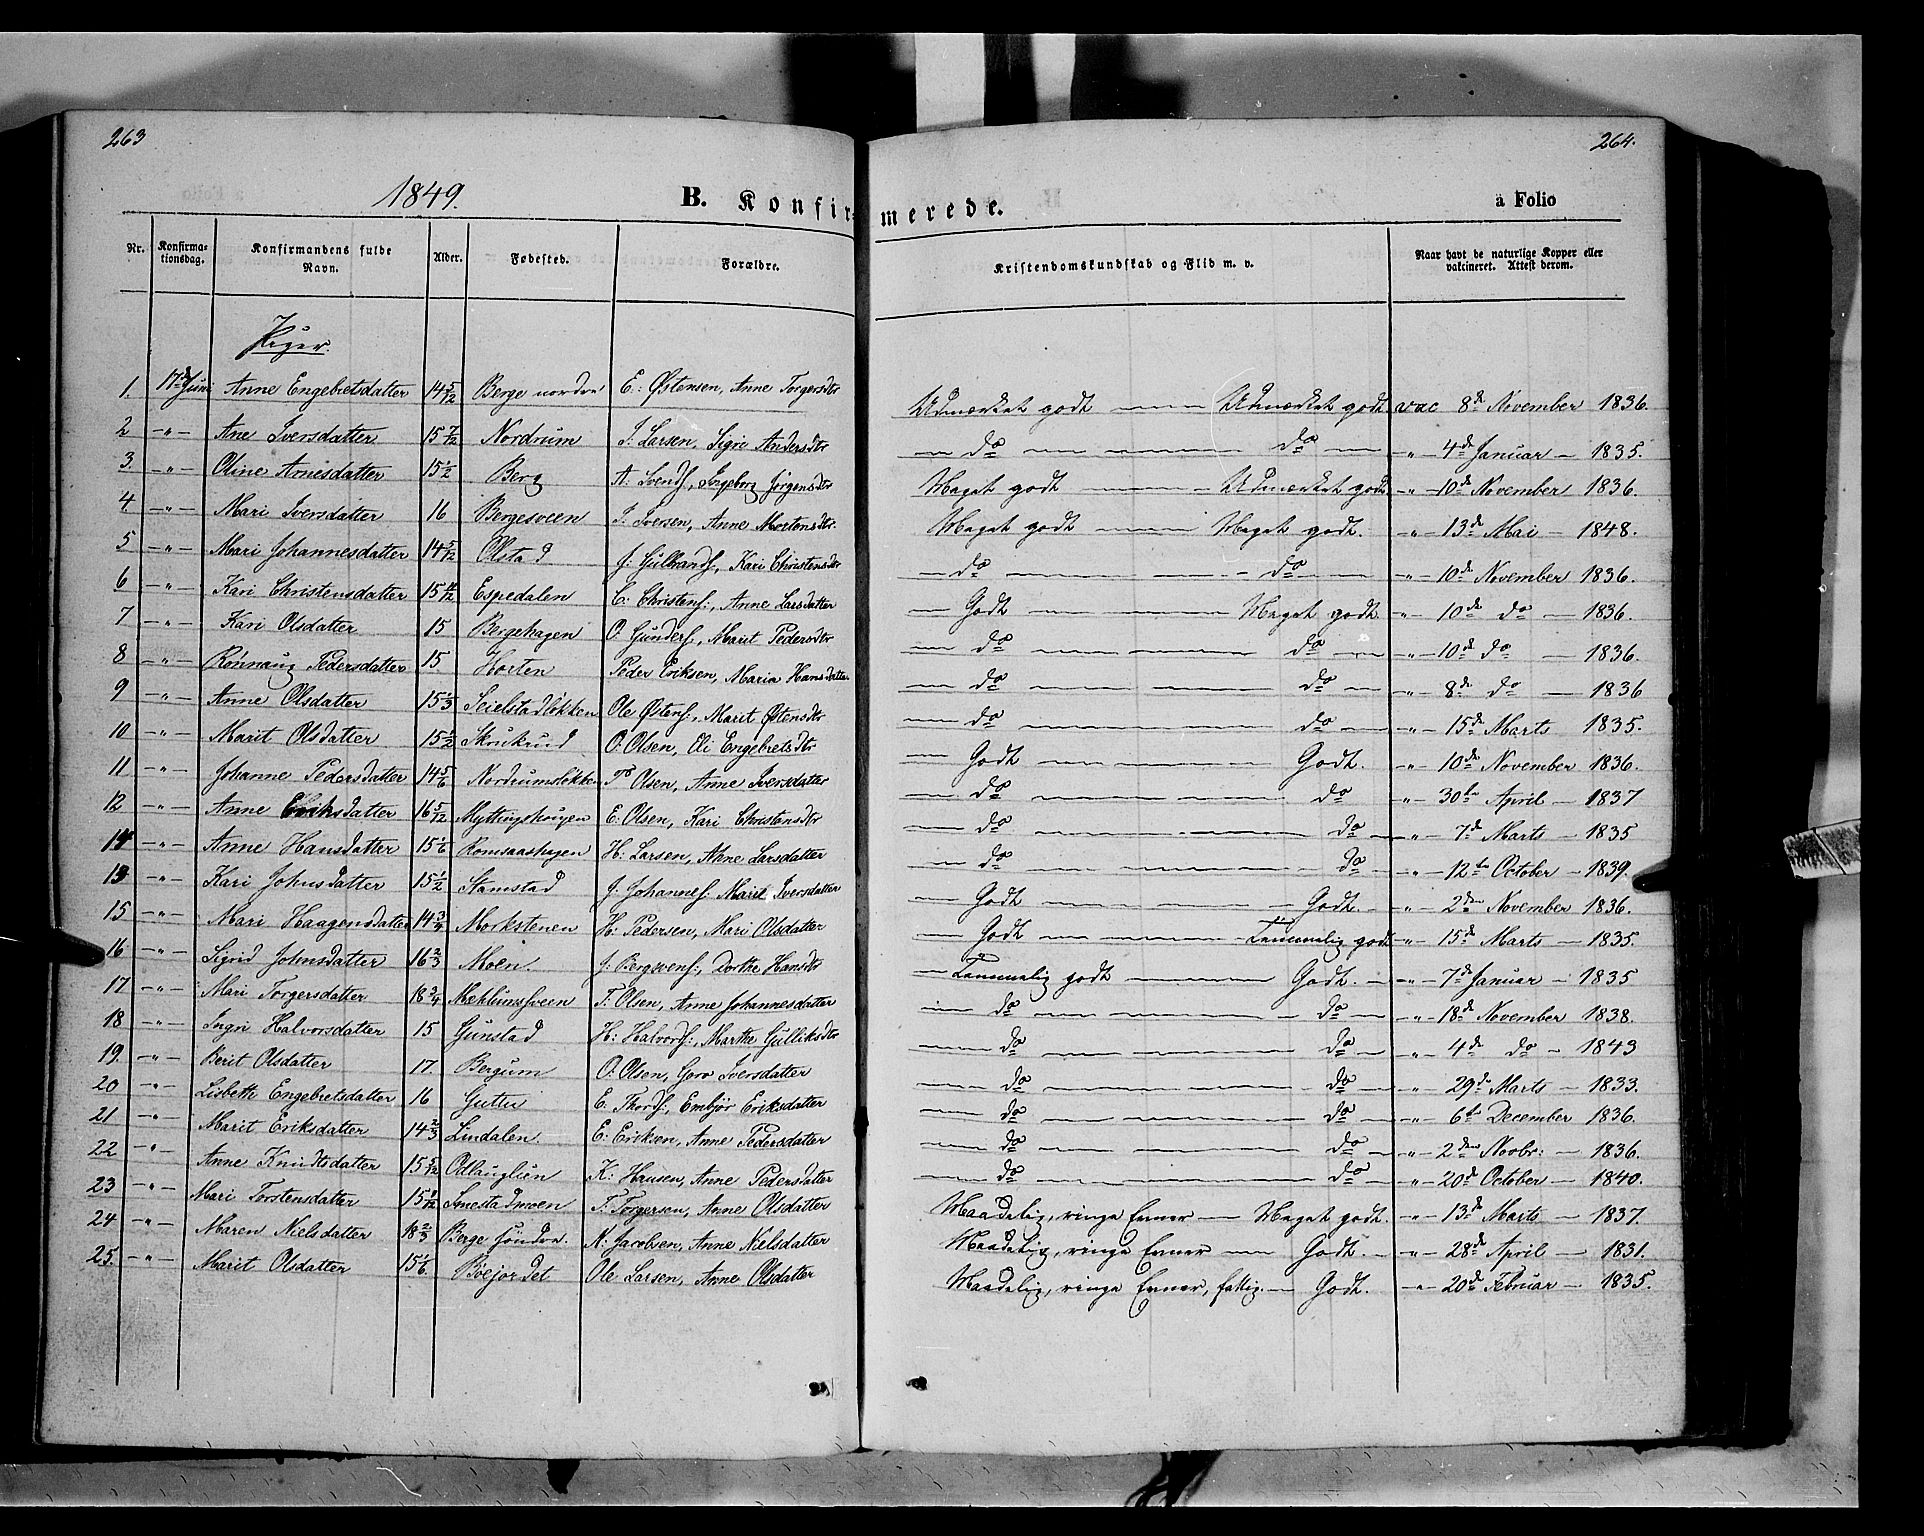 263
264.
1849. B. Konfirmerede. à Folio
Nr. Konfirmationsdag. Konfirmandens fulde Navn. Alder. Fødested. Forældre. Kristendomskundskab og Flid m. v. Naar havt de naturlige Kopper eller vakcineret. Attest derom.
Piger.
1. 17de Juni Anne Engebretsdatter 14 5/12 Berge nordre E: Østensen, Anne Torgersdtr Udmærket godt — Udmærket godt vac 8de November 1836.
2 —"— Ane Iversdatter 15 7/12 Nordrum I: Larsen, Sigri Andersdtr — do — do — " — 4de Januar — 1835.
3. —"— Oline Arnesdatter 15 1/2 Berg A: Svends:, Ingeborg Jørgensdtr Meget godt — Udmærket godt " — 10de November 1836.
4 —"— Mari Iversdatter 16 Bergesveen I: Iversen, Anne Mortensdtr. Meget godt — Meget godt. " — 13de Mai — 1848.
5 —"— Mari Johannesdatter 14 5/12 Olstad J: Gulbrands:, Kari Christensdtr — do — do — " — 10de November 1836.
6 —"— Kari Christensdatter 15 11/12 Espedalen C: Christens:, Anne Larsdatter — Godt — Meget godt. " — 10de do — 1836.
7 —"— Kari Olsdatter 15 Bergehagen O: Gunders:, Marit Pedersdtr — do — do — " — 10de do — 1836.
8 —"— Rønnaug Pedersdatter 15. Horten Peder Eriksen, Maria Hansdatter — do — do — " — 8de do — 1836
9 —"— Anne Olsdatter 15 1/3 Seielstadløkken Ole Østens:, Marit Østensdtr — do — do — " — 15de Marts 1835.
10 —"— Marit Olsdatter 15 1/2 Skrukrud O: Olsen, Eli Engebretsdtr — Godt — Godt. " — 10de November 1836.
11 —"— Johanne Pedersdatter 14 5/6 Nordrumsløkken P: Olsen, Anne Iversdatter — do — do " — 30te April — 1837
12 —"— Anne Eriksdatter 16 5/12 Myttingshougen E: Olsen, Kari Christensdtr — do — do — " — 7de Marts — 1835
14 —"— Anne Hansdatter 15 1/6 Romsaashagen H: Larsen, Anne Larsdatter — do — do — " — 12te October — 1839.
13 —"— Kari Johnsdatter 15 1/2 Stamstad J: Johannes: Marit Iversdatter — Godt — Godt — " — 2den November 1836.
15 —"— Mari Haagensdatter 14 3/4 Morkstenen H: Pedersen, Mari Olsdatter — Godt — Temmelig godt " — 15de Marts — 1835.
16 —"— Sigrid Johnsdatter 16 2/3 Moen. J: Bergsvens:, Dorthe Hansdtr — Temmelig godt — Godt. — " — 7de Januar — 1835
17 —"— Mari Torgersdatter 18 3/4 Mehlumssveen T: Olsen, Anne Johannesdatter — do — do — " — 18de November — 1838.
18 —"— Ingri Halvorsdatter 15 Gunstad H: Halvors:, Marthe Gulliksdtr — do — do — " — 4de do — 1843
19. —"— Berit Olsdatter 17 Bergum O: Olsen, Goro Iversdatter — do — do — " — 29de Marts — 1833.
20 —"— Lisbeth Engebretsdatter 16 Guttu E: Thords:, Embjør Eriksdatter — do — do — " — 6te December — 1836.
21 —"— Marit Eriksdatter 14 2/3 Lindalen. E: Eriksen, Anne Pedersdatter — do — do — " — 2den Novbr: — 1836.
22 —"— Anne Knudtsdatter 15 5/12 Odlauglien K: Hansen, Anne Pedersdatter — do — do — " — 20de October — 1840.
23 —"— Mari Torstensdatter 15 1/12 Smestadmoen T: Torgersen, Anne Olsdatter Maadelig, ringe Evner — Meget godt. " — 13de Marts — 1837.
24 —"— Maren Nielsdatter 18 2/3 Berge søndre. N: Jacobsen, Anne Nielsdatter Maadelig, ringe Evner — Godt. — " — 28de April — 1831.
25. —"— Marit Olsdatter 15 1/6 Bøejordet Ole Larsen, Anne Olsdatter Maadelig, ringe Evner, fattig. — Godt. " — 20de Februar — 1835.